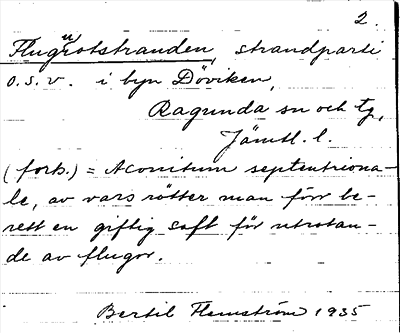 2.
Flugörtstranden, strandparti
o.s.v. i byn Döviken,
Ragunda sn och tg,
Jämtl. l.
(forts.) = Aconitum septentriona-
le, av vars rötter man förr be-
rett en giftig saft för utrotan-
de av flugor.
Bertil Flemström 1935